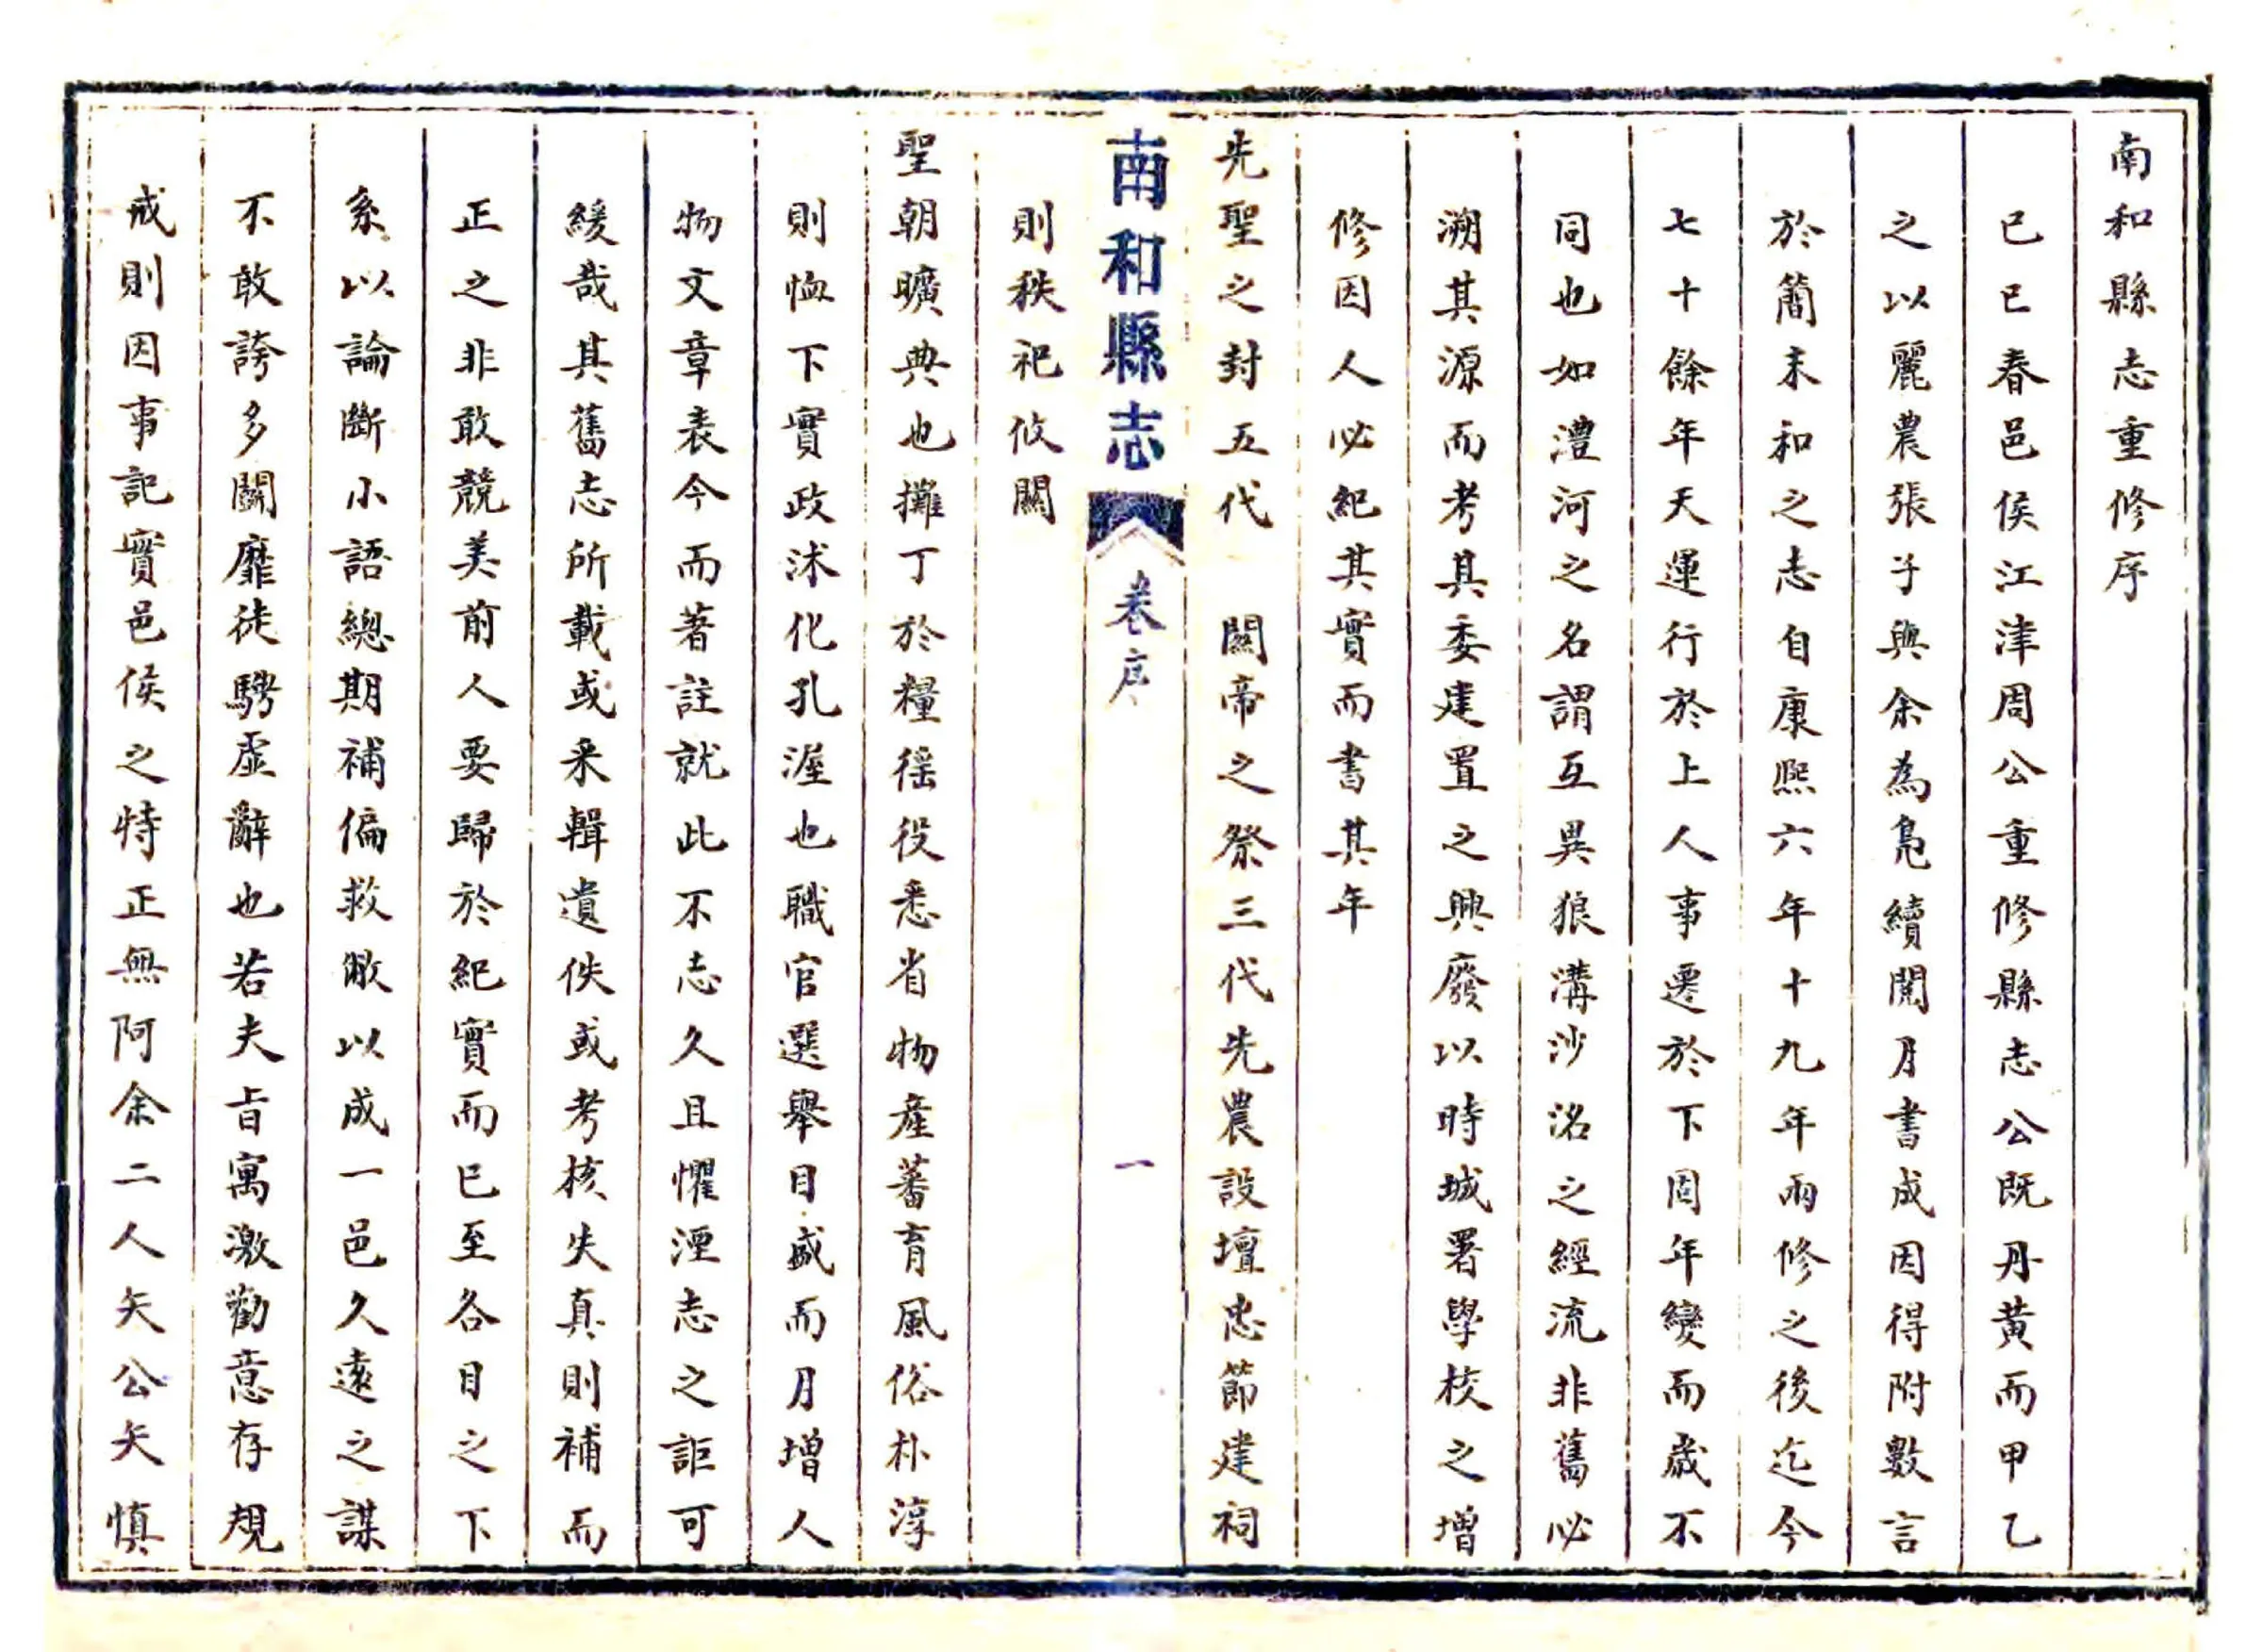 南和縣志重修序
己巳春邑侯江津周公重修縣志公既丹黃而甲乙
之以麗農張子與余為鳧續閱月書成因得附數言
於簡末和之志自康熙六年十九年兩修之後迄今
七十餘年天運行於上人事遷於下固年變而歲不
同也如澧河之名謂互異狼溝沙洺之經流非舊必
溯其源而考其委建置之興廢以時城署學校之增
修因人必紀其實而書其年
先聖之封五代　關帝之祭三代先農設壇忠節建祠
南和縣志　卷序　一
則秩祀攸關
聖朝曠典也攤丁於糧徭役悉省物產蕃育風俗朴淳
則恤下實政沭化孔渥也職官選舉日盛而月增人
物文章表今而著註就此不志久且懼湮志之詎可
緩哉其舊志所載或采輯遺佚或考核失真則補而
正之非敢競美前人要歸於紀實而已至各目之下
系以論斷小語總期補偏救敝以成一邑久遠之謀
不敢誇多鬬靡徒騁虛辭也若夫旨寓激勸意存規
戒則因事記實邑侯之特正無阿余二人矢公矢慎